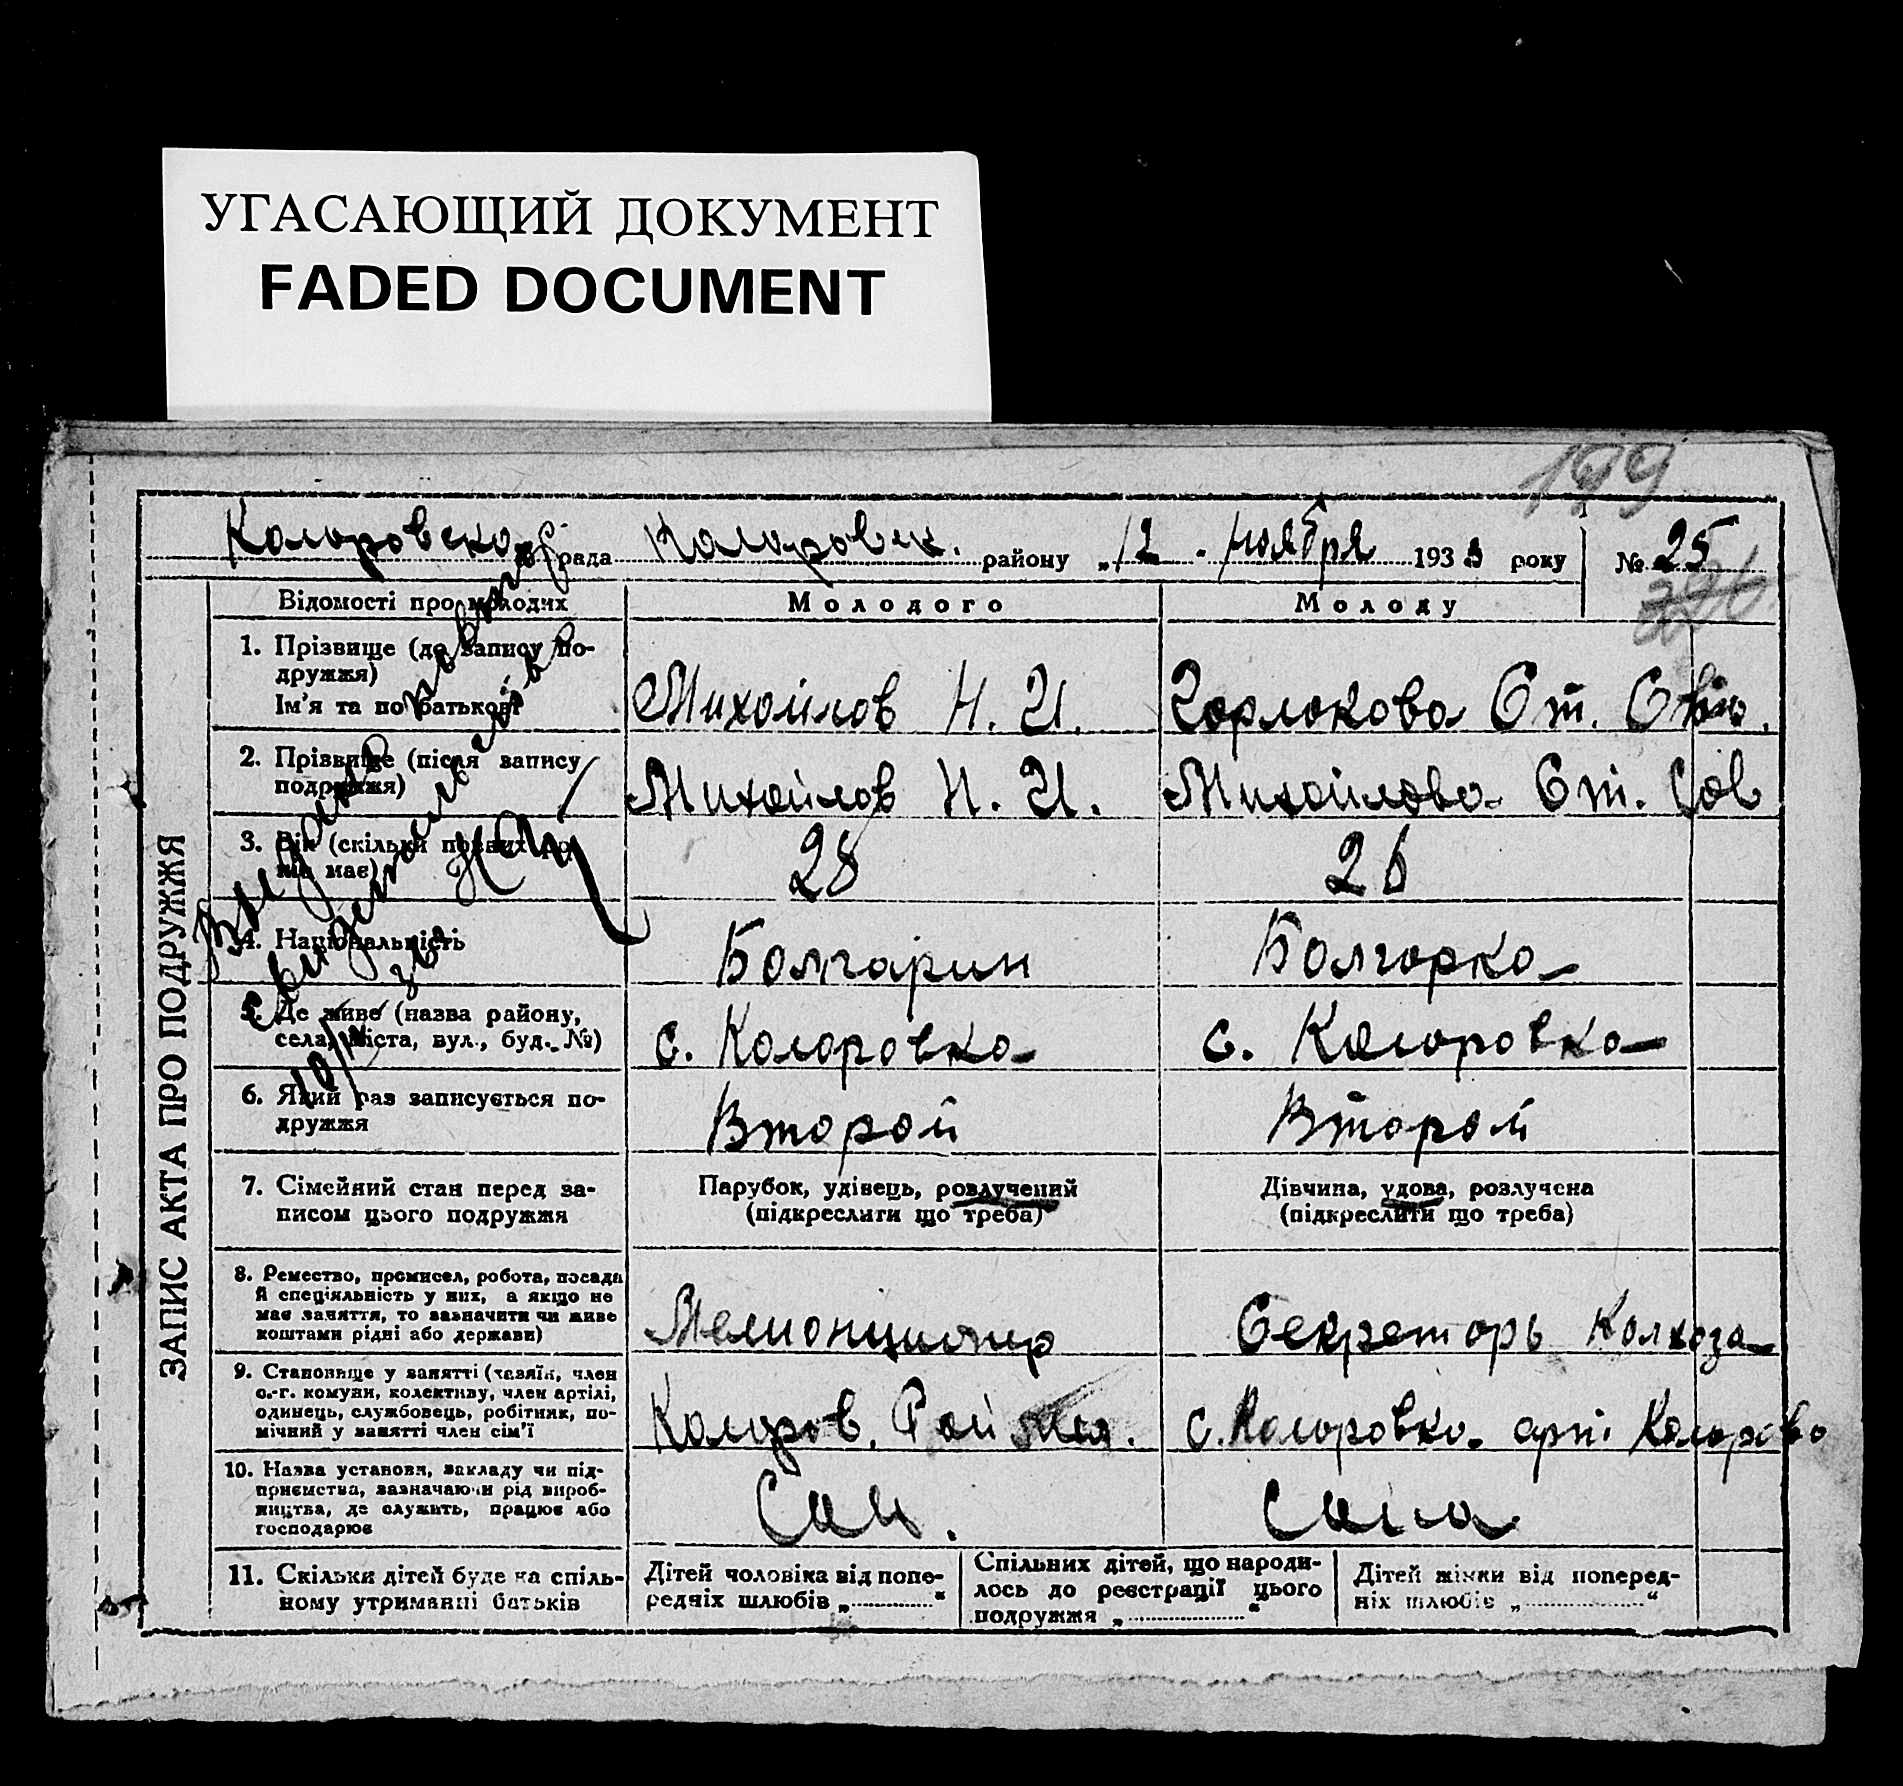 УГАСАЮЩИЙ ДОКУМЕНТ
FADED DOCUMENT
199
Коларовская рада Коларовск. району „12 - ноября 1933 року № 25
226
ЗАПИС АКТА ПРО ПОДРУЖЖЯ
Відомості про молодих Молодого Молоду
1. Прізвище (до запису по-
дружжя)
Ім'я та по батькові
Михайлов Н. И. Горлокова Ст.
2. Прізвище (після запису
подружжя)
Михайлов Н. И. Михайлова Ст. Сав
3. Вік (скільки повних ро-
ків має)
28 26
4. Національність
Болгарин Болгарка
5. Де живе (назва району,
села, міста, вул., буд. №)
с. Коларовка с. Коларовка
6. Який раз записується по-
дружжя
Второй Второй
7. Сімейний стан перед за-
писом цього подружжя
Парубок, удівець, розлучений
(підкреслити що треба)
Дівчина, удова, розлучена
(підкреслити що треба)
8. Ремество, промисел, робота, посада
й спеціяльність у них, а якщо не
має заняття, то зазначити чи живе
коштами рідні або держави)
Секреторь Колхоза
9. Становище у занятті (хазяїн, член
с.-г. комуни, колективу, член артілі,
одинець, службовець, робітник, по-
мічний у занятті член сім'ї
Колоров. Рай с. Коларовка арт. Коларова
10. Назва установи, закладу чи під-
приємства, зазначаючи рід вироб-
ництва, де служить, працює або
господарює
Сам. Сама
11. Скільки дітей буде на спіль-
ному утриманні батьків
Дітей чоловіка від попе-
редніх шлюбів „ “
Спільних дітей, що народи-
лось до реєстрації цього
подружжя „ “
Дітей жінки від поперед-
ніх шлюбів „ “